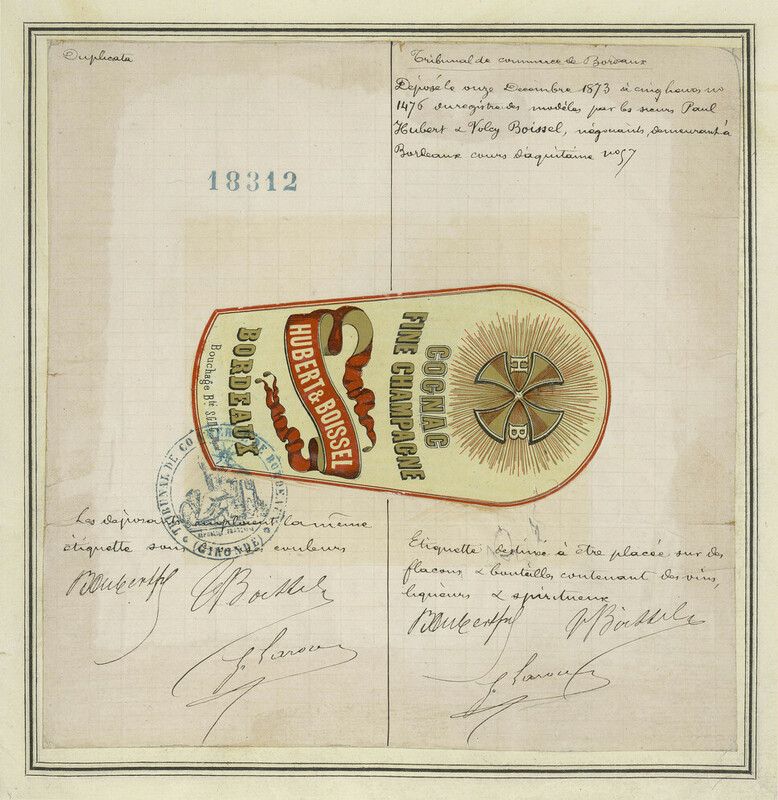 Duplicata
18312
Tribunal de commerce de Bordeaux
Déposé le onze Decembre 1873 à cinq heures no
1476 du registre des modèles par les sieurs Paul
Hubert & Volcy Boissel, négociants, demeurant à
Bordeaux cours d'aquitaine no 57
H B
COGNAC
FINE CHAMPAGNE
HUBERT & BOISSEL
BORDEAUX
Bouchage Bté SGDG
TRIBUNAL DE COMMERCE DE BORDEAUX
REPUBLIQUE FRANÇAISE
(GIRONDE)
Les déposants emploient la même
étiquette sous couleurs
Boissel
Etiquette destinée à être placée sur des
flacons & bouteilles contenant des vins,
liqueurs & spiritueux
Boissel